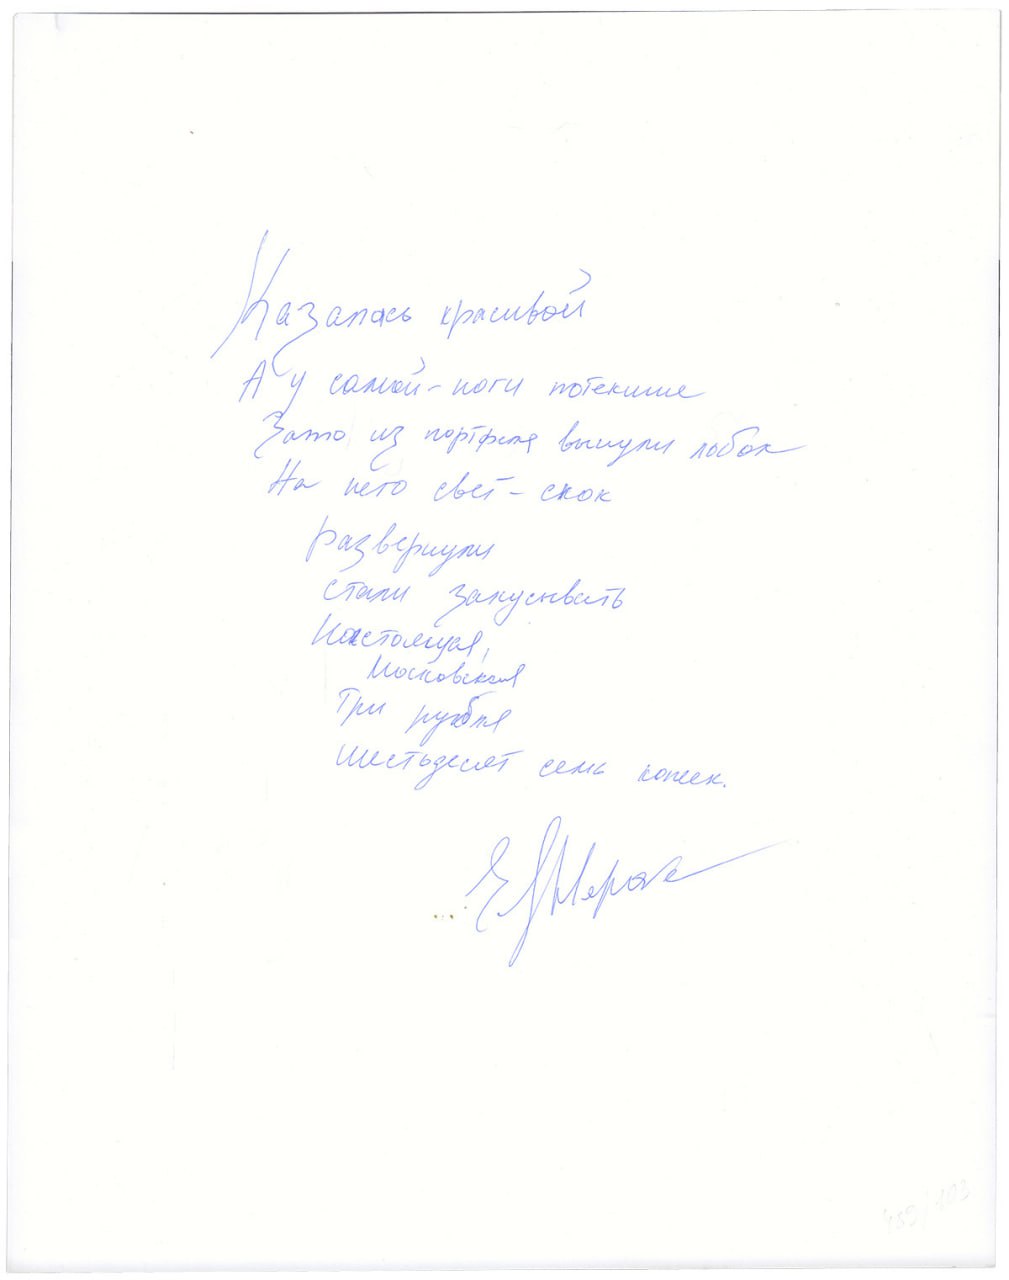 Казалась красивой
А у самой - ноги потекшие
Зато из портфеля вынули
На него свет -
Развернули
Стали закусывать
Настоящая,
Московская
Три рубля
Шестьдесят семь копеек.